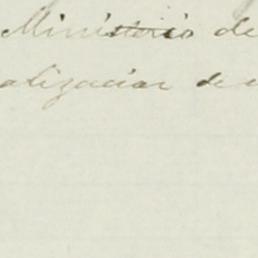 Ministerio de
alizacion de